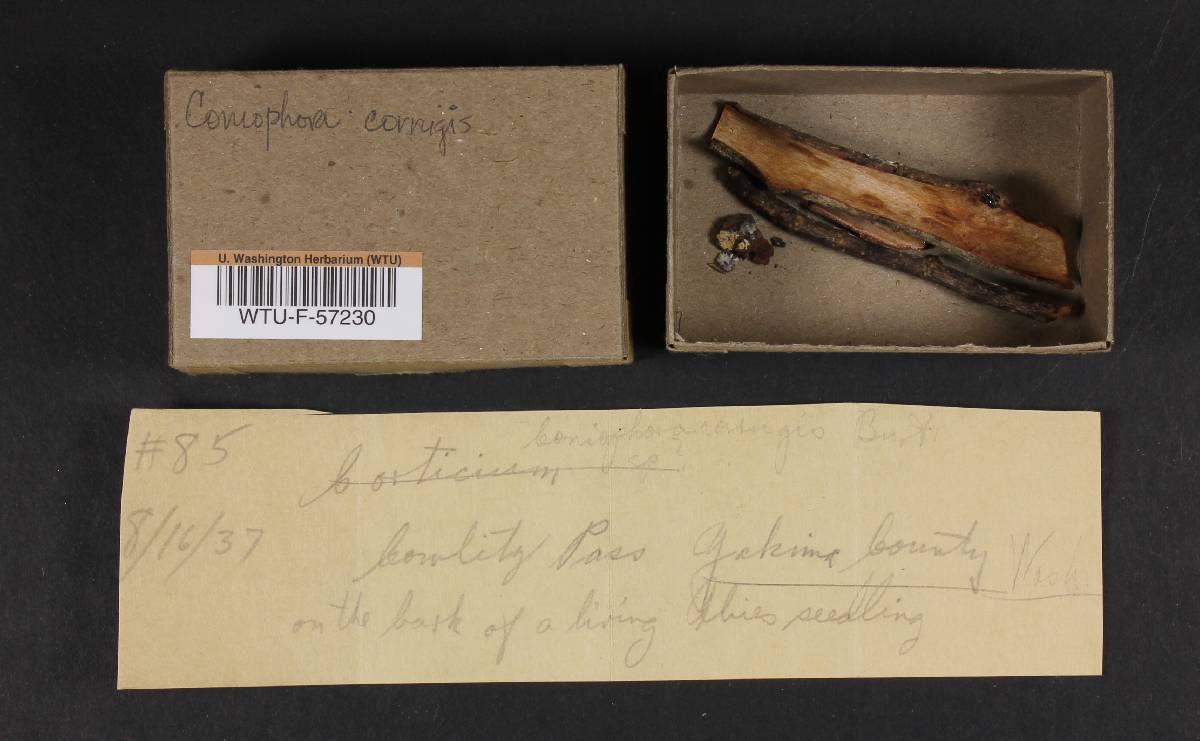 Coniophora corrugis
U. Washington Herbarium (WTU)
WTU-F-57230
#85
Coniophora corrugis Burt
Corticium sp?
8/16/37
Cowlitz Pass Yakima County Wash.
on the bark of a living Abies seedling